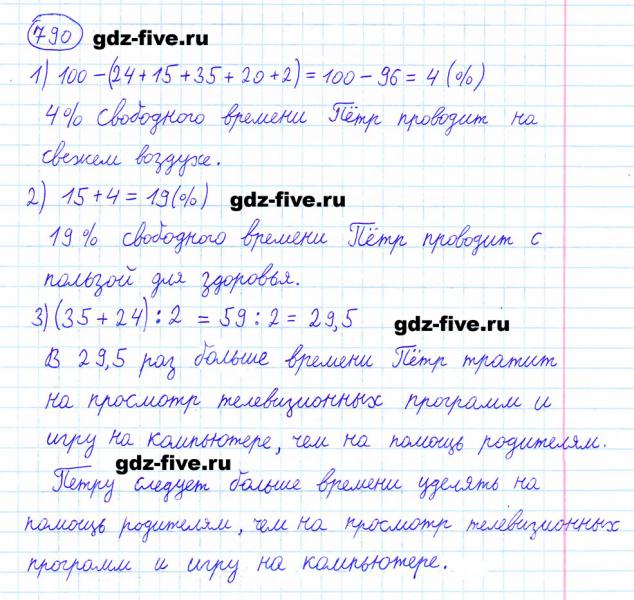 790 gdz-five.ru
1) 100-(24+15+35+20+2)=100-96=4(%)
4% свободного времени Пётр проводит на
свежем воздухе.
2) 15+4=19(%) gdz-five.ru
19% свободного времени Пётр проводит с
пользой для здоровья.
3)(35+24):2 =59:2=29,5
gdz-five.ru
В 29,5 раз больше времени Пётр тратит
на просмотр телевизионных программ и
игру на компьютере, чем на помощь родителям.
gdz-five.ru
Петру следует больше времени уделять на
помощь родителям, чем на просмотр телевизионных
программ и игру на компьютере.